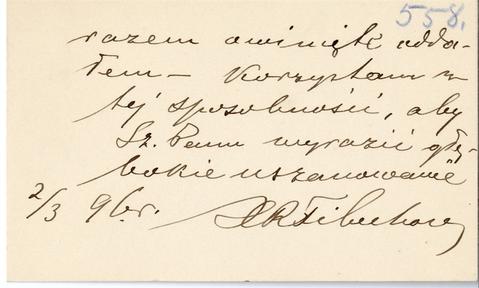 558.
razem
odda-
łem — Korzystam z
tej sposobności, aby
Sz. Panu wyrazić głę-
bokie uszanowanie
2/3 96 r.